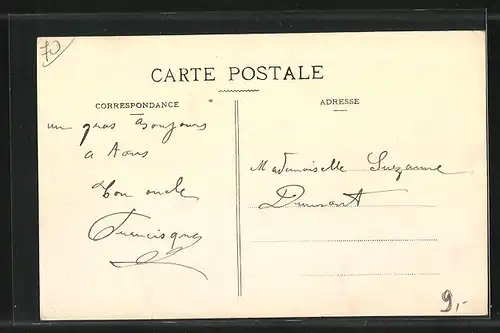 70
CARTE POSTALE
CORRESPONDANCE
ADRESSE
un gros Bonjours
a tous
Ton oncle
Francisque
Mademoiselle Suzanne
Dumont
9,-